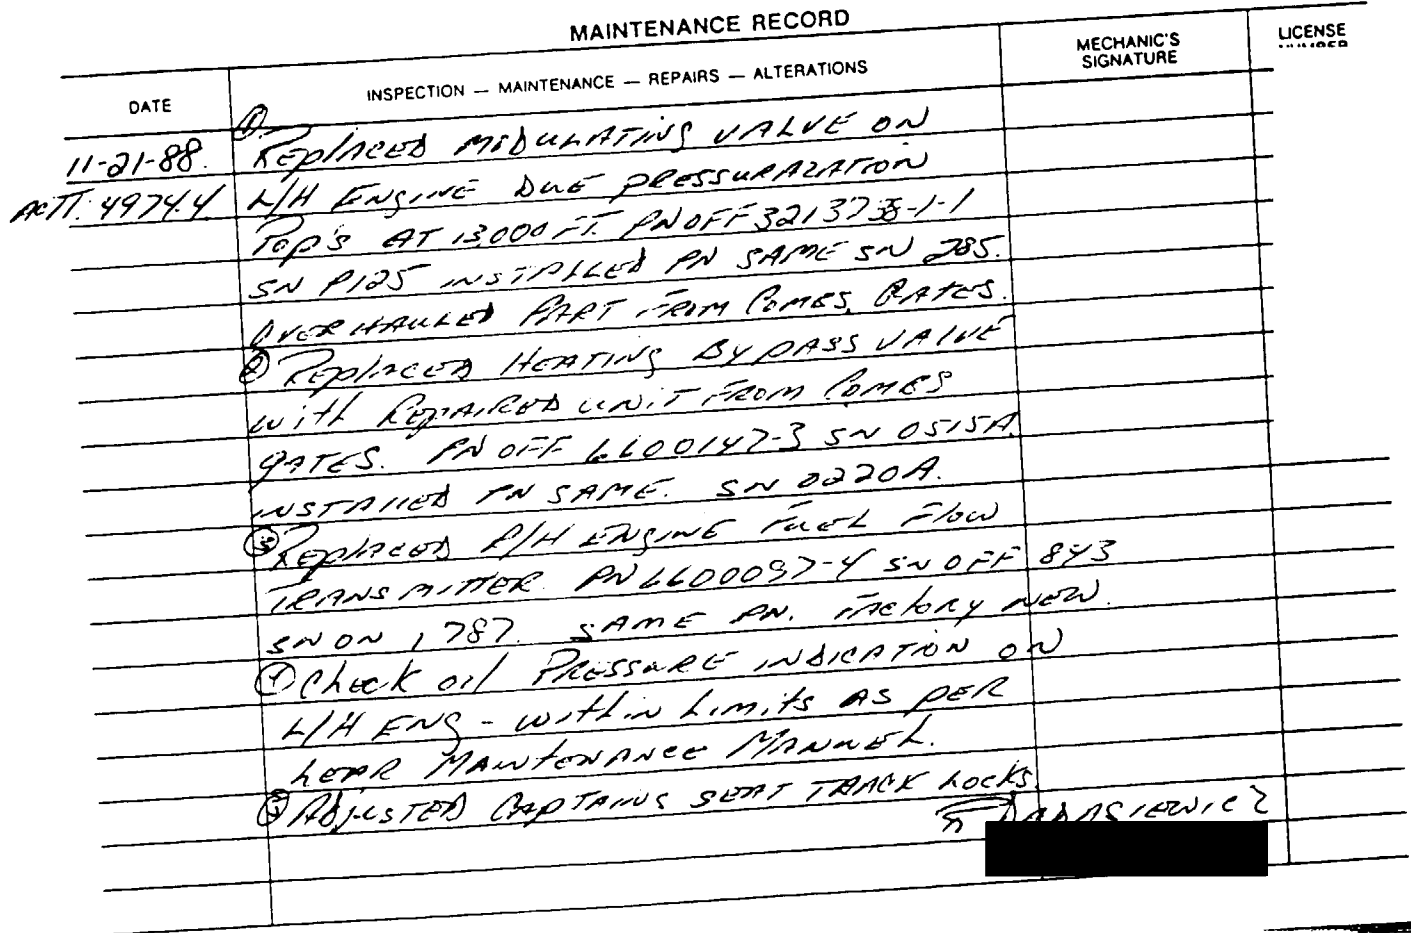 MAINTENANCE RECORD
DATE
INSPECTION — MAINTENANCE — REPAIRS — ALTERATIONS
MECHANIC'S
SIGNATURE
LICENSE
NUMBER
①
11-21-88. Replaced MODULATING VALVE ON
ACTT. 4974.4 L/H ENGINE DUE PRESSURAZATION
Pop's AT 13000 FT. PN OFF 3213738-1-1
SN P125 INSTALLED PN SAME SN 285.
OVERHAULED PART FROM COMBS GATES.
② Replaced HEATING BYPASS VALVE
with REPAIRED UNIT FROM COMBS
GATES. PN OFF 6600147-3 SN 0515A
INSTALLED PN SAME. SN 0220A.
③ Replaced R/H ENGINE FUEL Flow
TRANSMITTER PN 6600097-4 SN OFF 843
SN ON 1787. SAME PN. Factory NEW.
④ Check oil PRESSURE INDICATION ON
L/H ENG - within Limits AS PER
LEAR MAINTENANCE MANUEL.
⑤ ADJUSTED CAPTAINS SEAT TRACK LOCKS